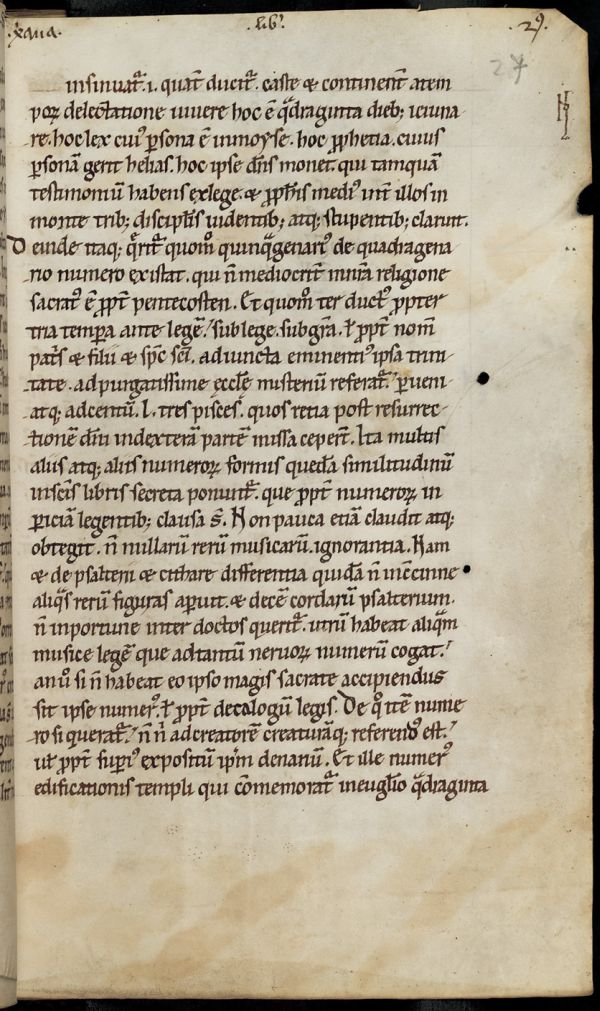 ·xaııa· lıbꝰ. ·29·
27
insinuat᷑. i. quat᷑ ducit᷑. caste & continent᷑ a tem
porꝝ delectatione uiuere hoc ē q̄draginta dieb; ieiuna-
re. hoc lex cuiꝰ ꝑsona ē in moyse. hoc ꝓphetia. cuius
ꝑsonā gerit helias. hoc ipse dn̄s monet. qui tamquā
testimoniū habens ex lege. & ꝓph̄is mediꝰ int̄ illos in
monte trib; disciplis uidentib; atq; stupentib; claruit.
Deinde itaq; q̄rit᷑ quom̊ quinq̄genariꝰ de quadragena
rio numero existat. qui n̄ mediocrit᷑ in nr̄a religione
sacratꝰ ē ꝓpt᷑ pentecosten. Et quom̊ ter ductꝰ ꝓpter
tria temp̄a ante legē. sub lege. sub gr̄a. ł ꝓpt᷑ nom̄
patͥs & filii & sp̄c sc̄i. adiuncta eminentiꝰ ipsa trini-
tate. ad purgatissime ęccłe misteriū referat᷑. ꝑueni-
atq; ad centū. L. tres pisces. quos retia post resurrec-
tionē dn̄i in dexterā partē missa cepert̄. Ita multis
aliis atq; aliis numerorꝝ formis quedā similitudinū
in sc̄is libris secreta ponunt᷑. que ꝓpt᷑ numerorꝝ in
ꝑiciā legentib; clausa s̄. Non pauca etiā claudit atq;
obtegit. n̄ nullarū rerū musicarū. ignorantia. Nam
& de psalterii & cithare differentia quidā n̄ incēcinne
aliq̄s rerū figuras aperuit. & decē cordarū psalterium.
n̄ inportune inter doctos querit᷑. utrū habeat aliq̄m
musice legē que ad tantū neruorꝝ numerū cogat.
an uͦ si n̄ habeat eo ipso magis sacrate accipiendus
sit ipse numerꝰ. ł ꝓpt᷑ decalogū legis. De qͦ itē nume
ro si querat᷑. n̄ nͥ ad creatorē creaturāq; referendꝰ est.
ul̄ ꝓpt᷑ suꝑiꝰ expositū ip̄m denariū. Et ille numerꝰ
edificationis templi qui cōmemorat᷑ in euglio q̄draginta